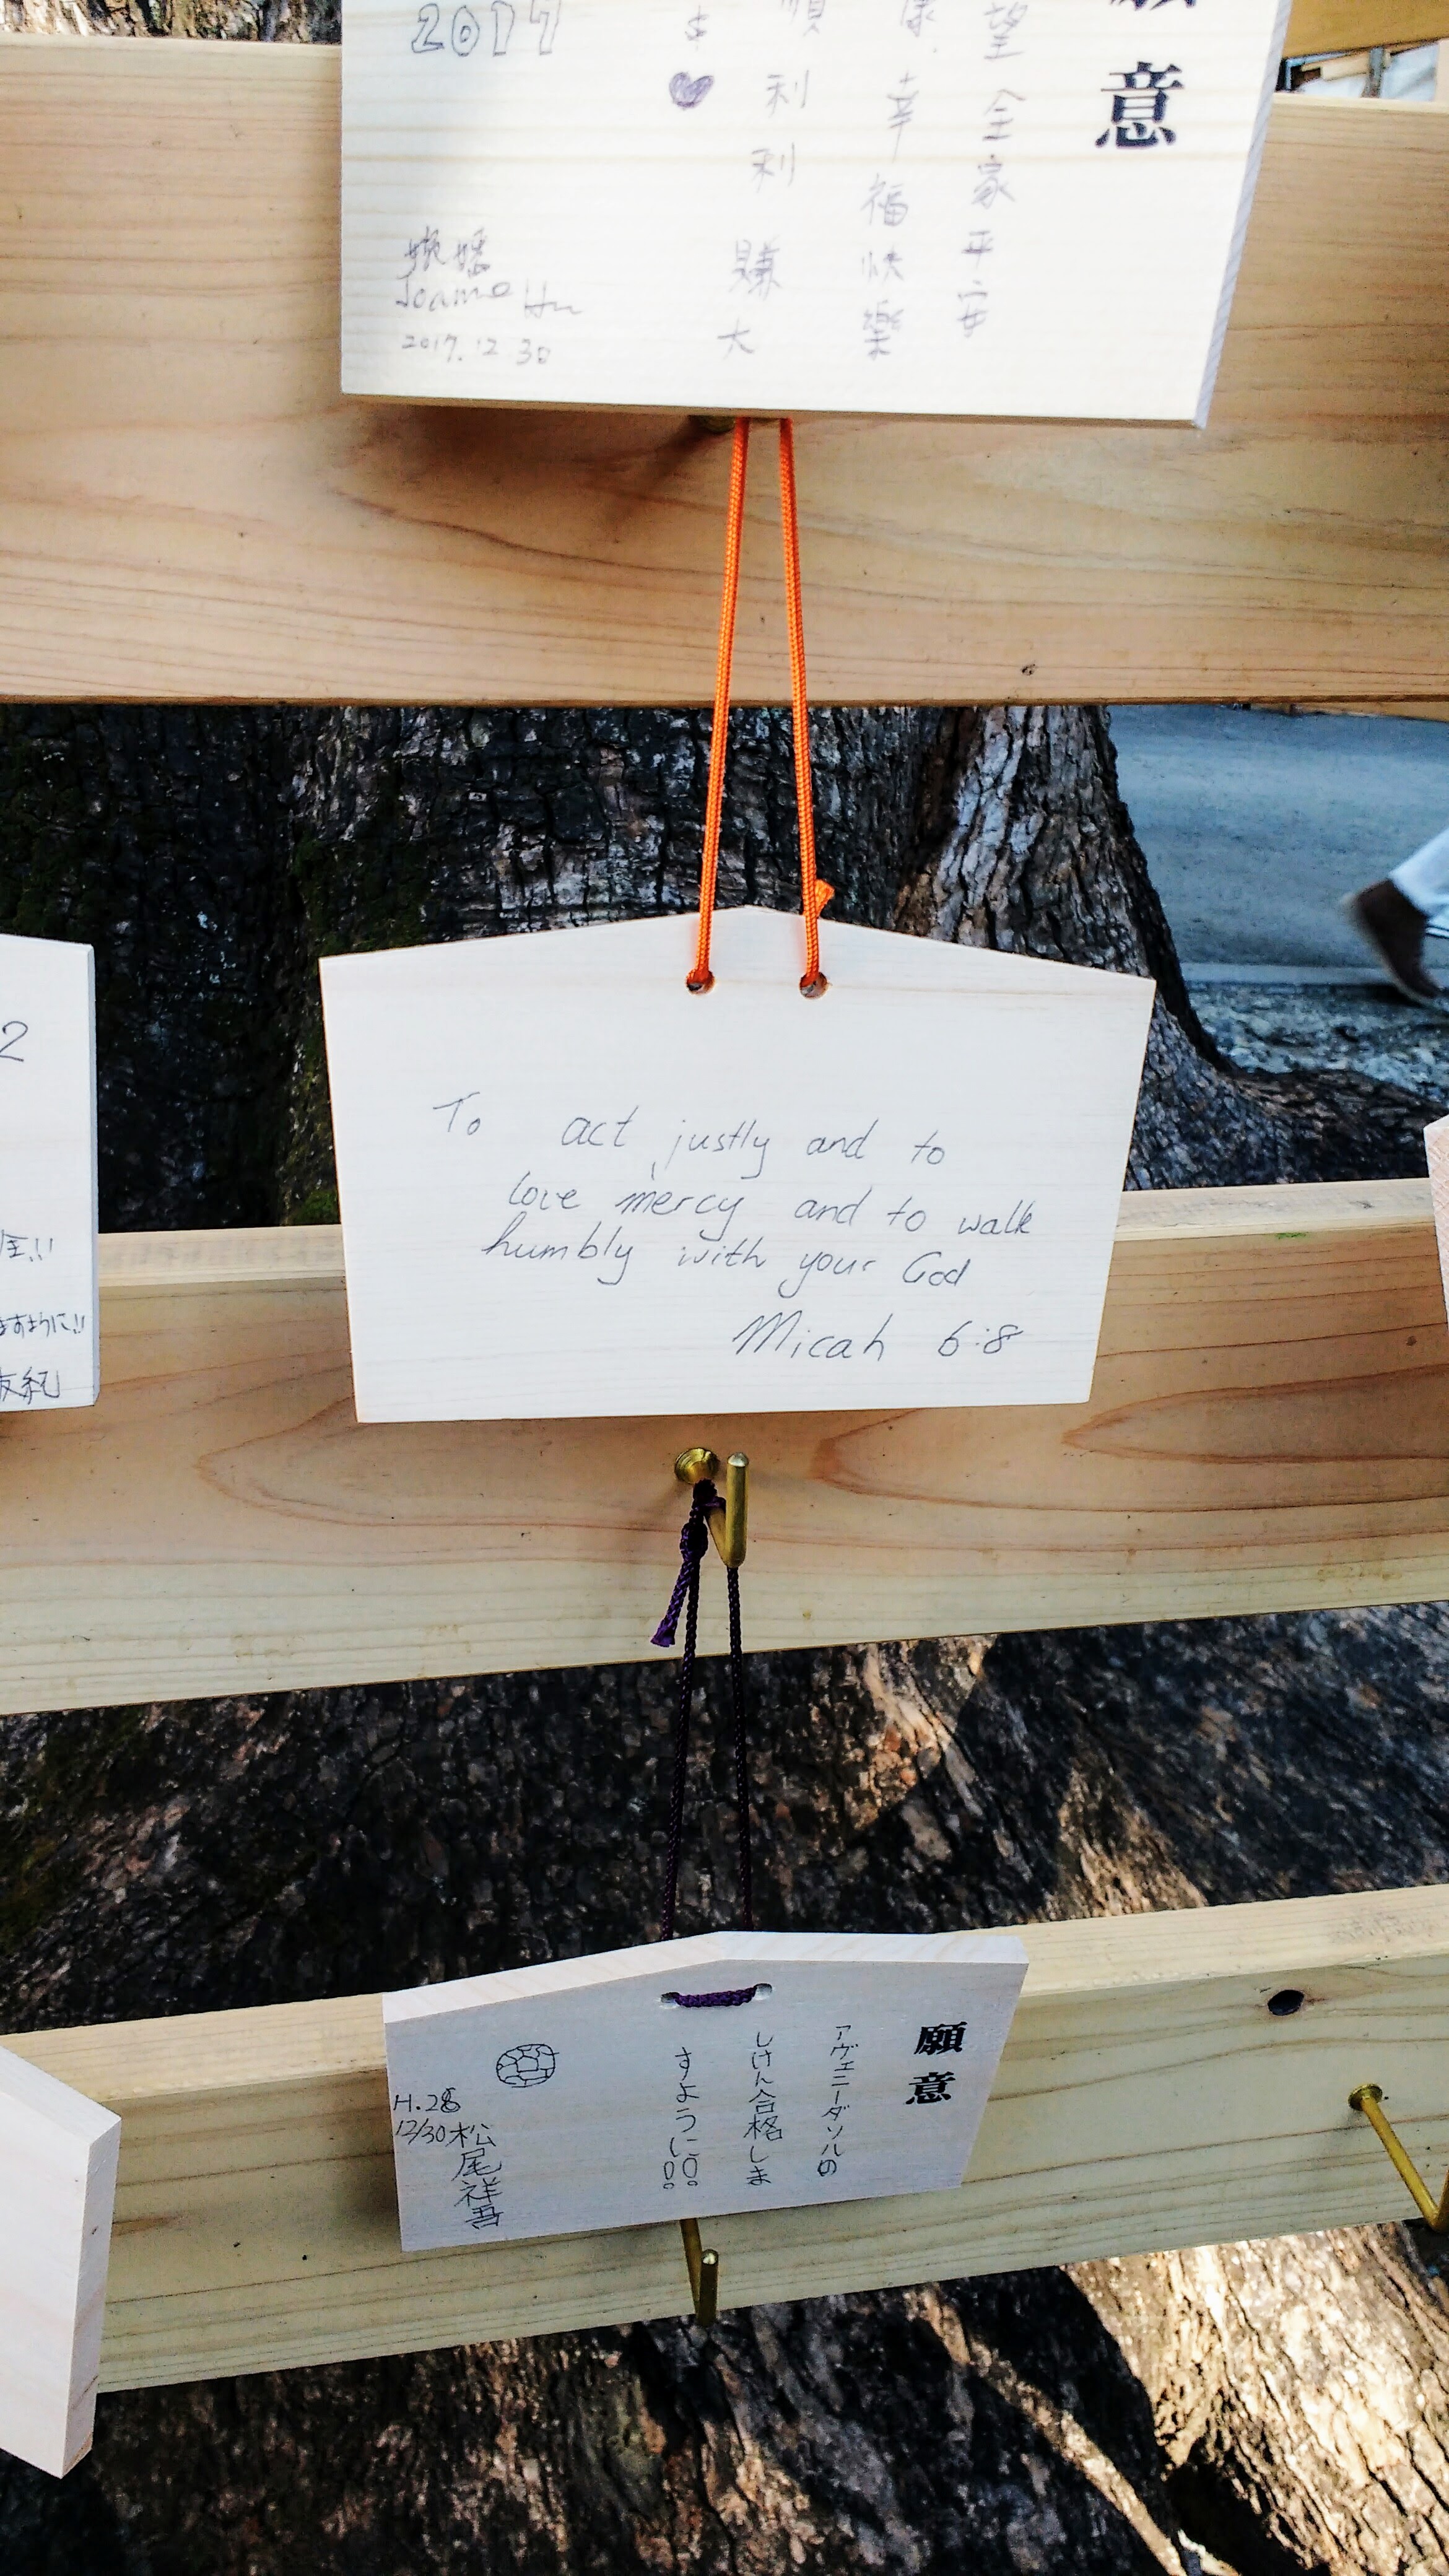 意
望全家平安
康.幸福快樂
順利利賺大
$
2017
Joanne Hu
2017.12.30
2
ますように!!
友紀
To act justly and to
love mercy and to walk
humbly with your God
Micah 6:8
願意
アヴェニーダソルの
しけん合格しま
すように!!
H.28
12/30 松尾祥吾